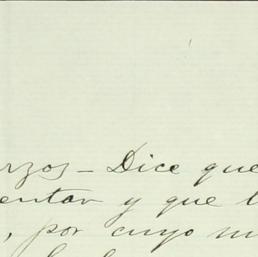 rzos - Dice que
entar y que l
, por cuyo m